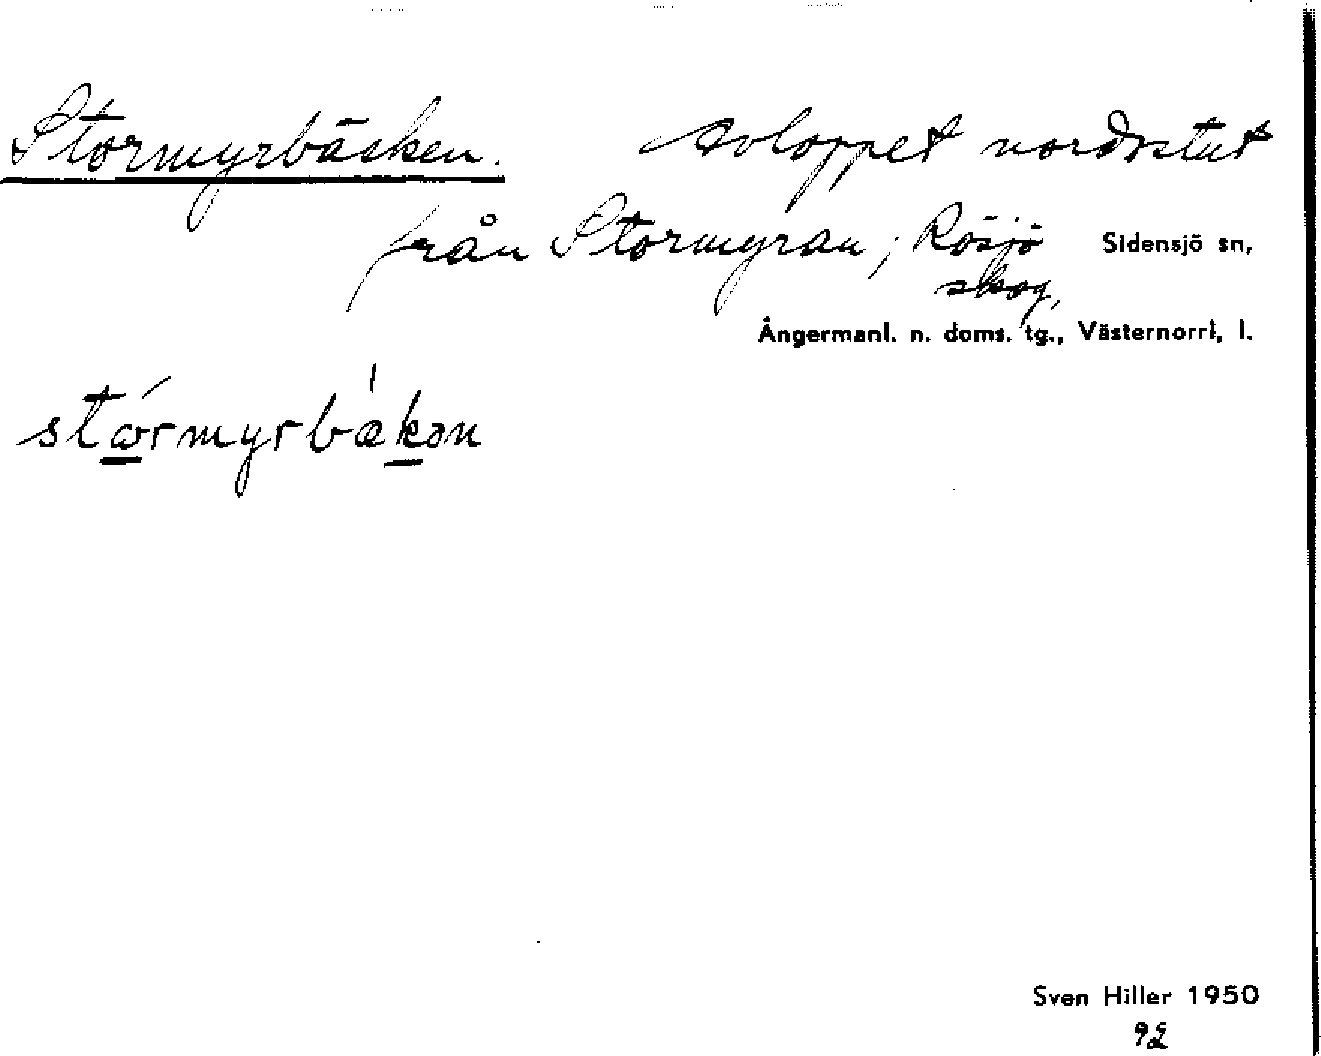 Stormyrbäcken. Avloppet nordostut
från Stormyran, Rösjö Sidensjö sn,
skog,
Ångermanl. n. doms. tg., Västernorrl. l.
stǫ́rmyrbækən
Sven Hiller 1950
92